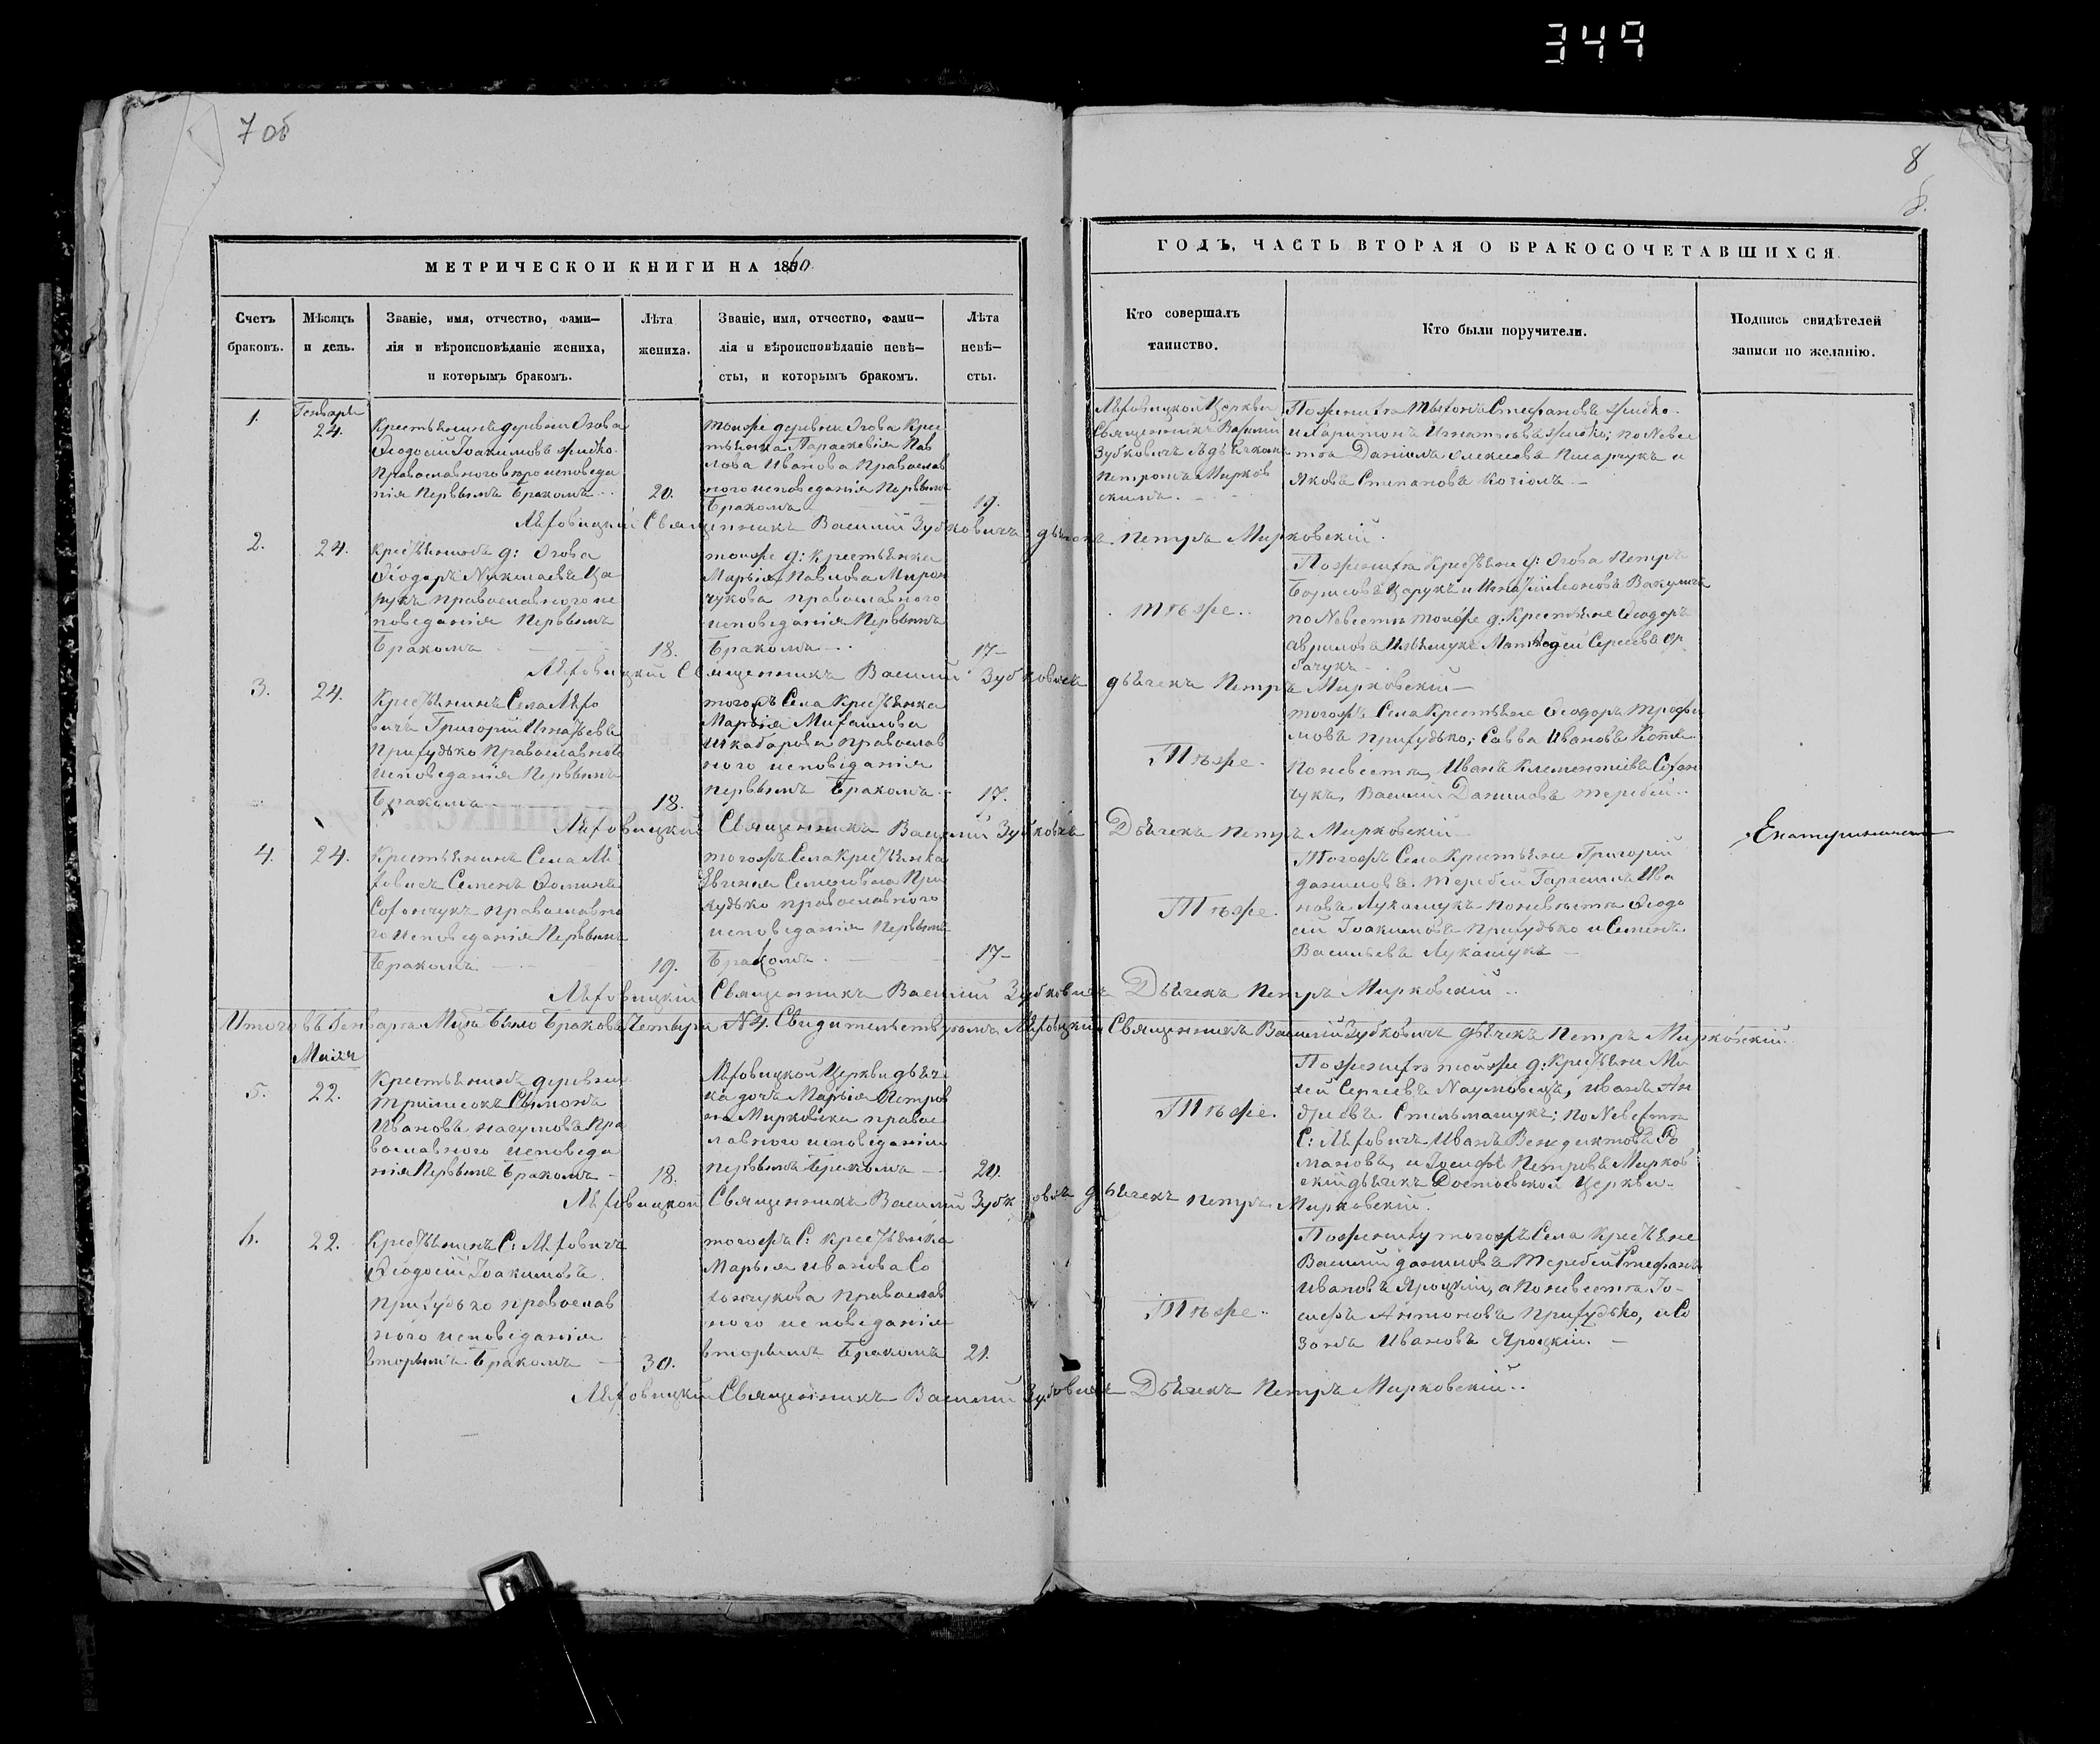 349
7 об
8
8.
МЕТРИЧЕСКОЙ КНИГИ НА 1860.
ГОДЪ, ЧАСТЬ ВТОРАЯ О БРАКОСОЧЕТАВШИХСЯ.
Счетъ
браковъ.
Мѣсяцъ
и день.
Званіе, имя, отчество, фами—
лія и вѣроисповѣданіе жениха,
и которымъ бракомъ.
Лѣта
жениха.
Званіе, имя, отчество, фами—
лія и вѣроисповѣданіе невѣ—
сты, и которымъ бракомъ.
Лѣта
невѣ—
сты.
Кто совершалъ
таинство.
Кто были поручители.
Подпись свидѣтелей
записи по желанію.
1.
Генваря
24.
Крестьянинъ деревни Огова
Ѳеодосій Іоакимовъ
Православного вѣроисповеда
нія Первымъ Бракомъ
20.
тойже деревни Огова Крес
тьянка Параскевія Пав
лова Иванова Православ
ного исповеданія Первымъ
Бракомъ
19.
Ляховицкой Церкви
Священникъ Василій
Зубковичъ съ дьячкомъ
Петромъ Мирков
скимъ.
По жениха Стефановъ
и Харитонъ Игнатьевъ по Невес
та Даніилъ Алексеевъ Писарчукъ и
Яковъ Степановъ Козіолъ
Ляховицкій Священникъ Василій Зубковичъ дьячекъ Петръ Мирковскій.
2.
24.
Крестьянинъ д: Огова
Ѳеодоръ Николаевъ Ца
рукъ православного ис
поведанія Первымъ
Бракомъ
18.
тойже д: крестьянка
Марья Павлова Миро
чукова православного
исповеданія Первымъ
Бракомъ
17
тъже.
По жениха Крестьяне д: Огова Петръ
Борисовъ Царукъ и Игнатій Леоновъ Вакулич
по Невесты тойже д: Крестьяне Ѳеодоръ
Гавриловъ Матвей Сергеевъ
Ляховицкій Священникъ Василій Зубковичъ дьячекъ Петръ Мирковскій
3.
24.
Крестьянинъ Села Ляхо
вичъ Григорій Игнатьевъ
Прихудько Православного
исповеданія Первымъ
Бракомъ
18.
тогожъ Села Крестьянка
Марья Михайлова
Шкабарова православ
ного исповеданія
первымъ Бракомъ
17.
Тъже.
тогожъ Села Крестьяне Ѳеодоръ Трофи
мовъ Прихудько; Савва Ивановъ
По невеста, Иванъ Клементіевъ Сохан
чукъ, Василій Даниловъ Теребей
Ляховицкій Священникъ Василій Зубковичъ Дьячекъ Петръ Мирковскій
4.
24.
Крестьянинъ Села Ля
ховичъ Семенъ Ѳоминъ
Соханчукъ православно
го исповеданія Первымъ
Бракомъ
19.
тогожъ Села Крестьянка
Евгенія Семеновна При
худько православного
исповеданія Первымъ
Бракомъ
17
Тъже.
Тогожъ Села Крестьяне Григорій
даниловъ Теребей Ива
новъ Лукашукъ по невѣста Ѳеодо
сій Іоакимовъ Прихудько и Семенъ
Васильевъ Лукашукъ
Ляховицкій Священникъ Василій Зубковичъ Дьячекъ Петръ Мирковскій
Итого въ Генваря Мцѣ было Браковъ Четыри №4. Свидительствуемъ Ляховицкій Священникъ Василій Зубковичъ дьячекъ Петръ Мирковскій
Маія
5.
22.
Крестьянинъ деревни
Ивановъ Наумовъ Пра
вославного исповеда
нія Первымъ Бракомъ
18.
Ляховицкой Церкви дьяч
ка дочь Марья Петров
на Мирковска право
славного исповеданія
первымъ Бракомъ
20.
Тъже.
По жениха тойже д: Крестьяне Ми
хей Сергеевъ Наумовецъ, Иванъ Ан
дреевъ Стельмашукъ; по Невеста
С: Ляховичъ Иванъ Венедиктовъ Ро
мановъ, и Іосифъ Петровъ Мирков
скій дьячекъ Достоевской Церкви
Ляховицкой Священникъ Василій Зубковичъ дьячекъ Петръ Мирковскій.
6.
22.
Крестьянинъ С: Ляховичъ
Ѳеодосій Іоакимовъ
Прихудько православ
ного исповеданія
вторымъ Бракомъ
30.
тогожъ С: Крестьянка
Марья Иванова Со
ханчукова Православ
ного исповеданія
вторымъ Бракомъ
21.
Тъже.
По жениху тогожъ Села Крестьяне
Василій даниловъ Теребей Стефанъ
Ивановъ Яроцкій, а По невеста Іо
сифъ Антоновъ Прихудько, и Со
зонъ Ивановъ Яроцкій.
Ляховицкій Священникъ Василій Зубковичъ Дьячекъ Петръ Мирковскій.